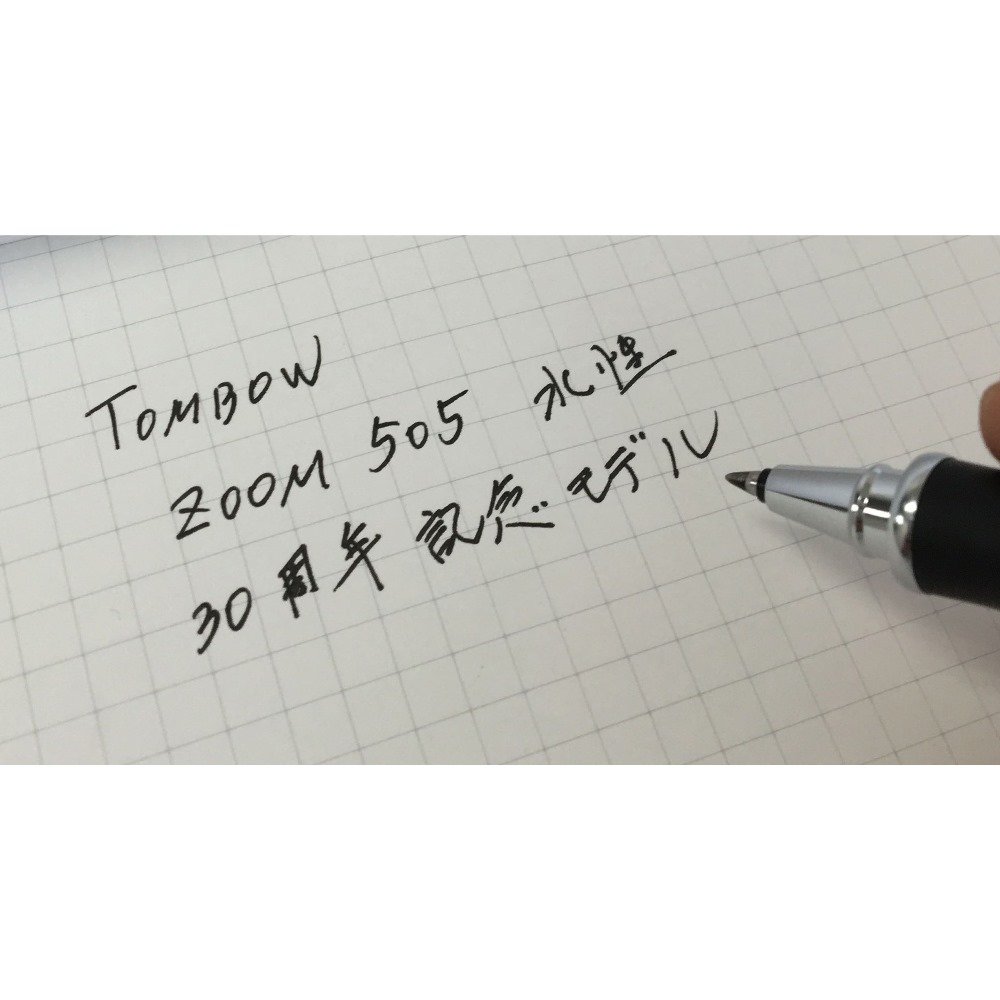 TOMBOW
ZOOM 505 水性
30周年 記念モデル